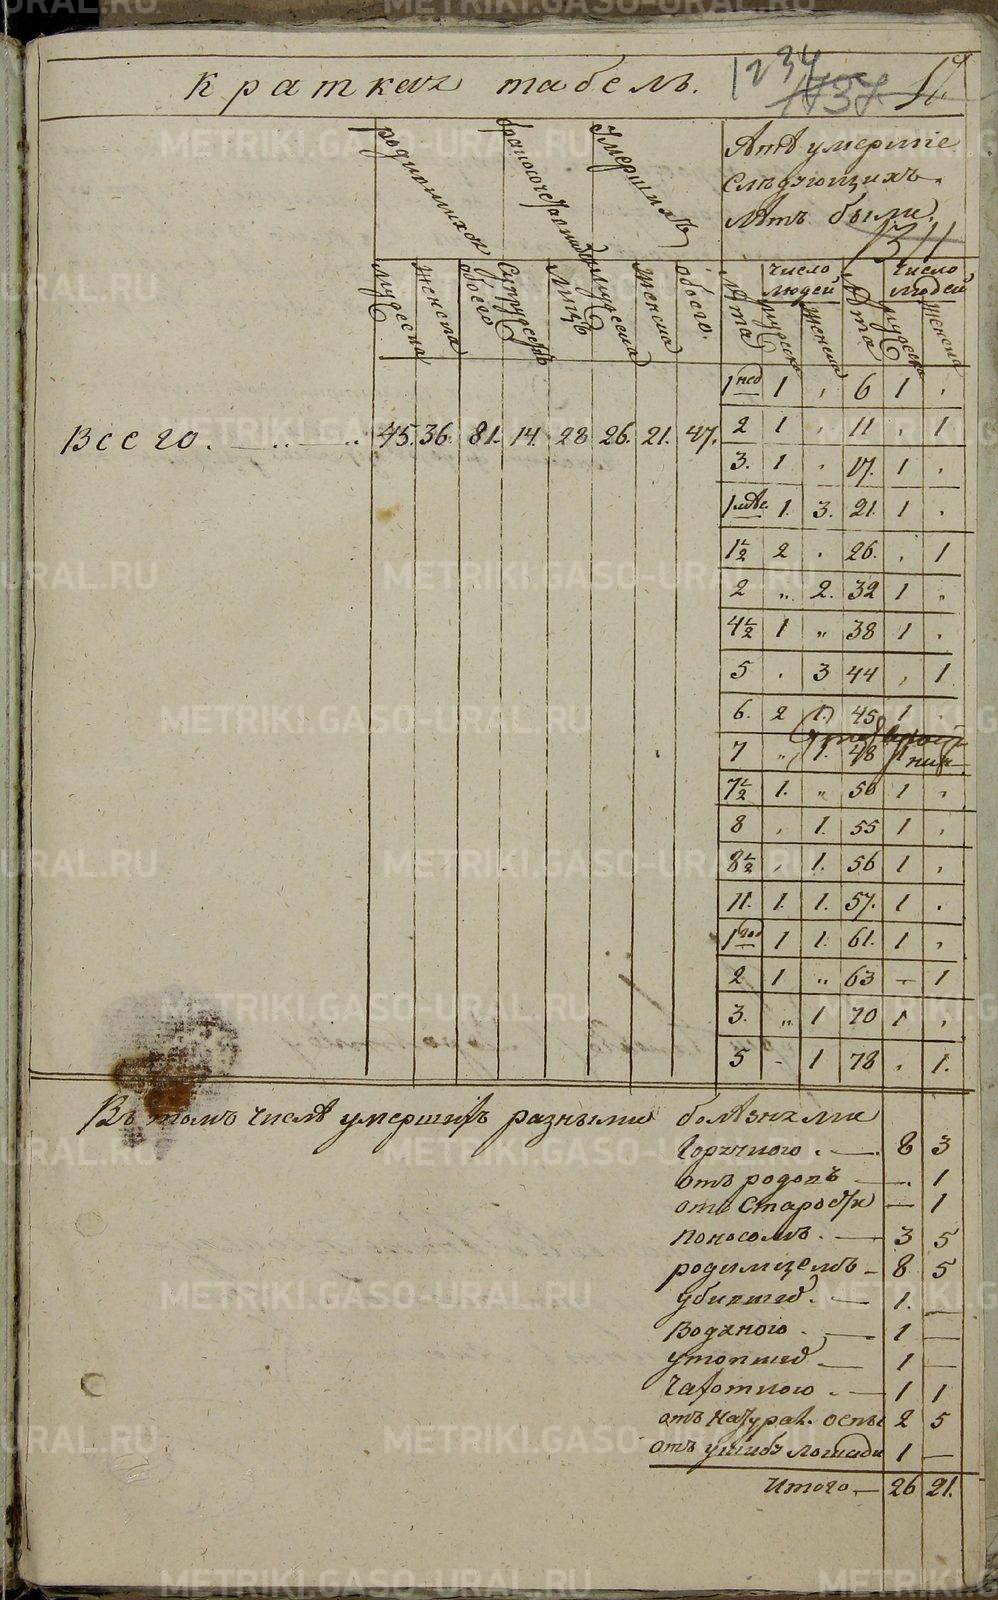 краткая табель.
1234
родившихся
бракосочетавшихся
умершихъ
Лѣтъ умершіе
слѣдующихъ
лѣтъ были.
мужеска
женска
обоего
Супружествъ
Лицъ
мужеска
женска
обоего.
Лѣта
число людей
мужеска
женска
Лѣта
число людей
мужеска
женска
1 нед 1 „ 6 1 „
Всего. 45. 36. 81. 14. 28 26. 21. 47.
2 1 „ 11 „ 1
3. 1 „ 17. 1 „
1 мѣс. 1. 3. 21. 1 „
1½ 2 „ 26. „ 1
2 „ 2. 32 1 „
4½ 1 „ 38 1 „
5 „ 3 44 „ 1
6. 2 1. 45 1 „
7 „ 1. 48 1
7½ 1. „ 50 1 „
8 „ 1. 55 1 „
8½ „ 1. 56 1 „
11. 1. 1. 57. 1 „
1 год 1 1. 61. 1 „
2 1 „ 63 – 1
3. „ 1 70 1 „
5 – 1 78 „ 1.
Въ томъ числѣ умершихъ разными болѣзнями
Горячкою. — 8 3
отъ родовъ — 1
отъ Старости — 1
поносомъ. — 3 5
родимцемъ – 8 5
убившед. — 1. —
Водяною. — 1 —
утопшед — 1 —
Чахоткою. — 1 1
отъ натурал. оспы 2 5
отъ ушибу лошади 1 —
Итого. — 26 21.
METRIKI.GASO-URAL.RU